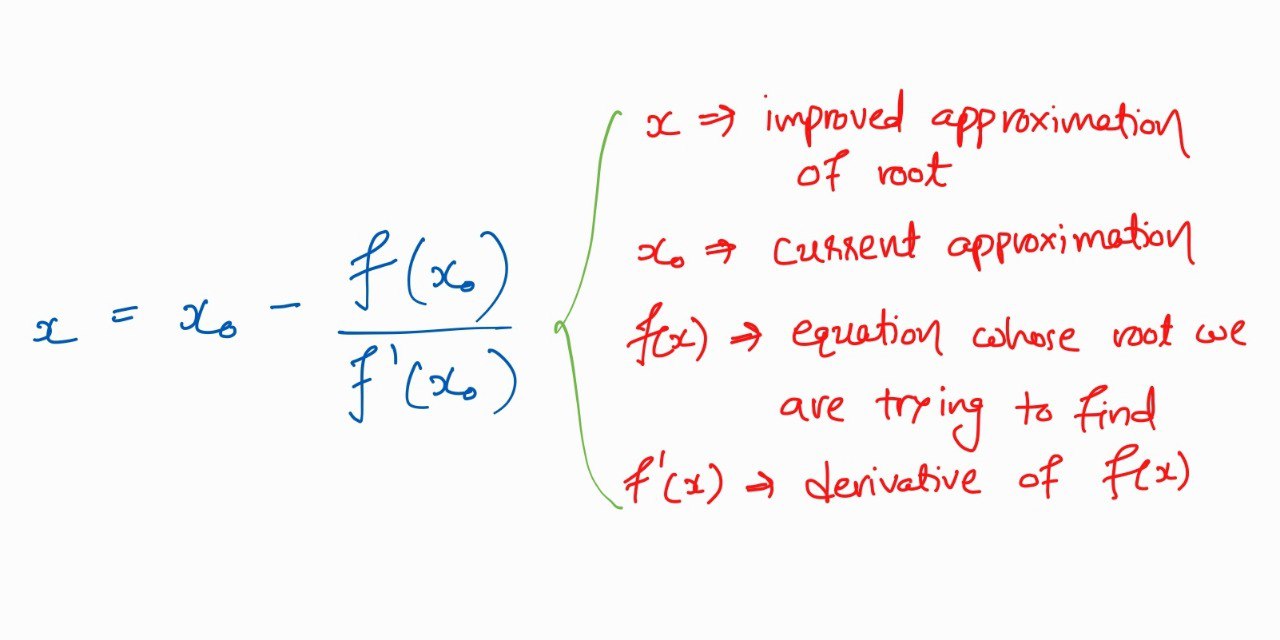 x = x₀ - f(x₀) / f'(x₀)
x ⇒ improved approximation
of root
x₀ ⇒ current approximation
f(x) ⇒ equation whose root we
are trying to find
f'(x) ⇒ derivative of f(x)